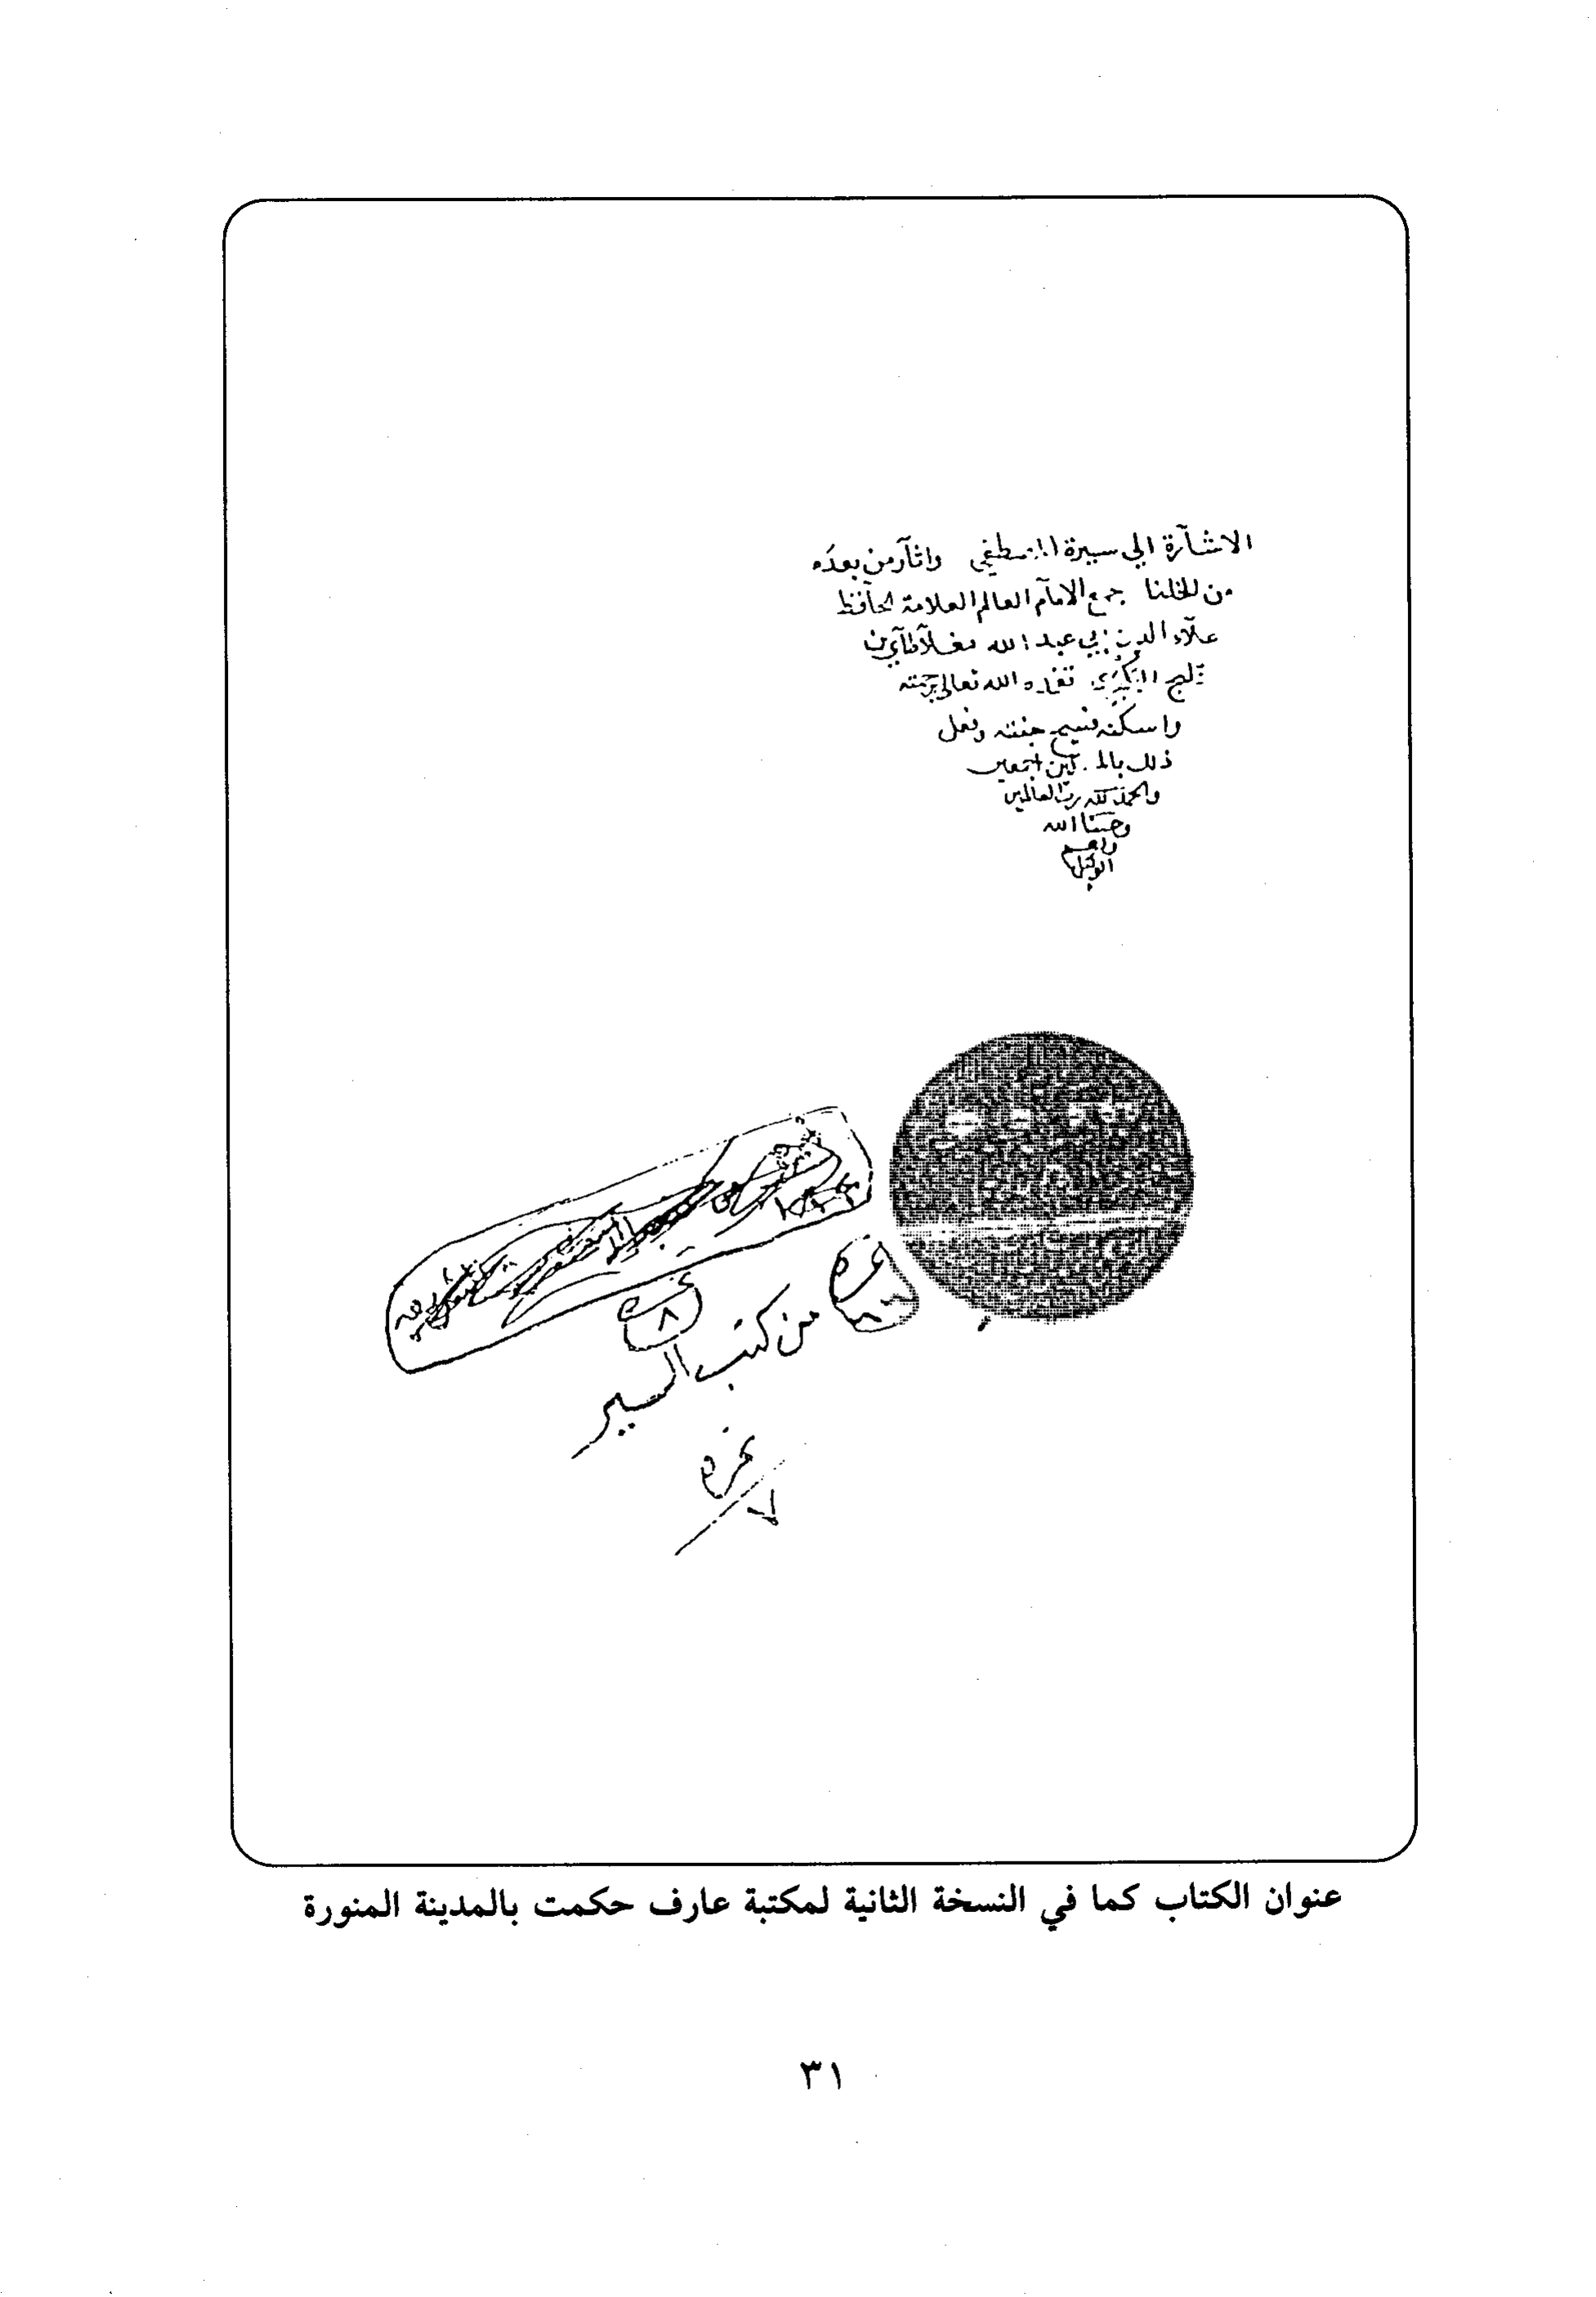 الاشآرة الي سيرة المصطفي واثآر من بعده
من الخلفا جمع الامآم العالم العلامة الحآفظ
علآء الدين ابي عبد الله مغلآطآي بن
قليج البكري تغمده الله تعالى برحمته
واسكنه فسيح جنته وفعل
ذلك اجمعين
والحمد لله رب العالمين
وحسبنا الله
ونعم
الوكيل
نمره
نمره
٨
من كتب السير
نمره
٧
عنوان الكتاب كما في النسخة الثانية لمكتبة عارف حكمت بالمدينة المنورة
٣١